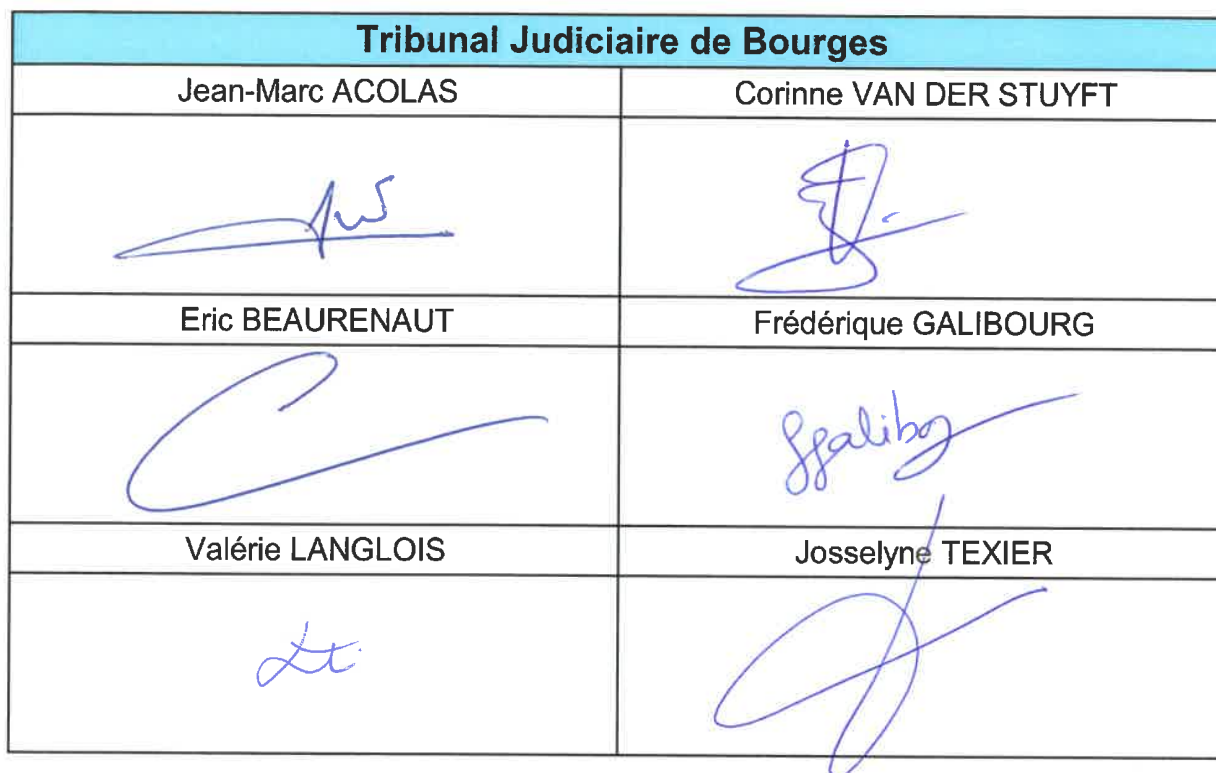 Tribunal Judiciaire de Bourges
Jean-Marc ACOLAS
Corinne VAN DER STUYFT
Eric BEAURENAUT
Frédérique GALIBOURG
Valérie LANGLOIS
Josselyne TEXIER